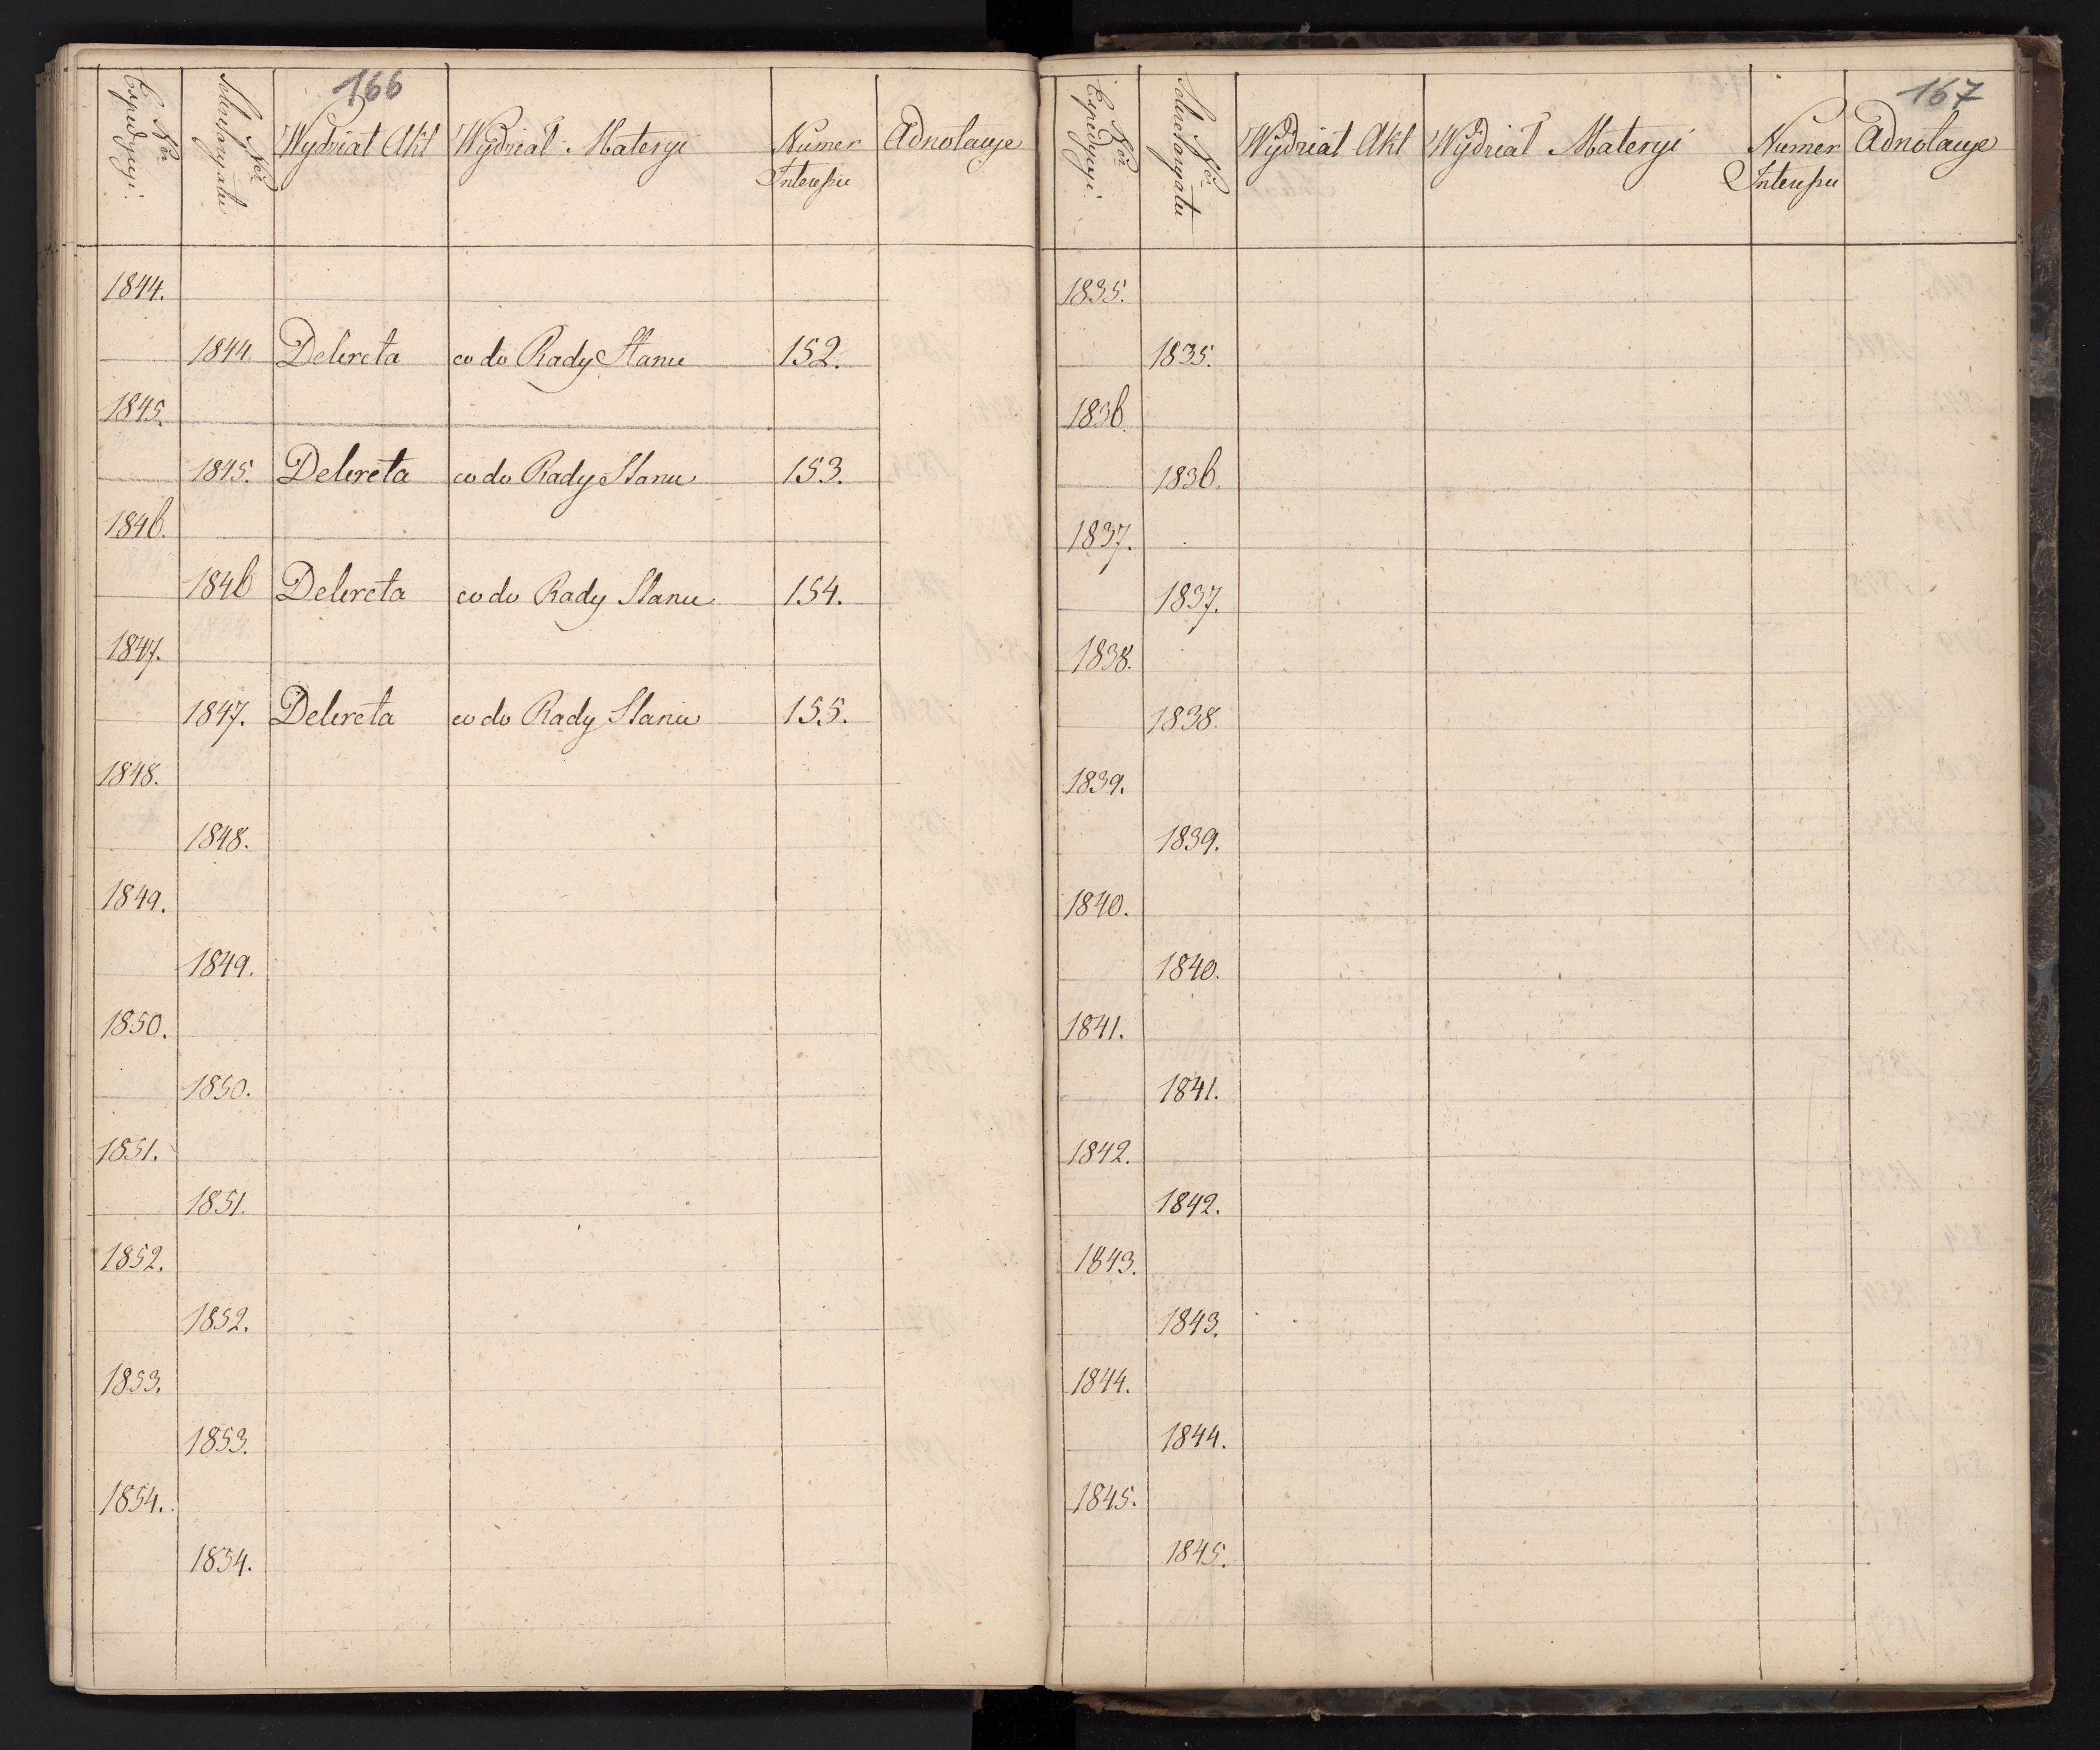 166
Nro Expedycyi.
Nro
Wydział Akt
Wydział Materyi
Numer Interessu
Adnotacye
1844.
1844 Dekreta co do Rady Stanu 152.
1845.
1845. Dekreta co do Rady Stanu 153.
1846.
1846 Dekreta co do Rady Stanu 154.
1847.
1847. Dekreta co do Rady Stanu 155.
1848.
1848.
1849.
1849.
1850.
1850.
1851.
1851.
1852.
1852.
1853.
1853.
1854.
1854.
167
Nro Expedycyi.
Nro
Wydział Akt
Wydział Materyi
Numer Interessu
Adnotacye
1835.
1835.
1836.
1836.
1837.
1837.
1838.
1838.
1839.
1839.
1840.
1840.
1841.
1841.
1842.
1842.
1843.
1843.
1844.
1844.
1845.
1845.